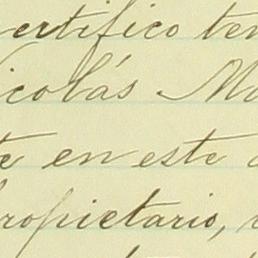 ertifico ten
icolás Mo
te en este
ropietario,